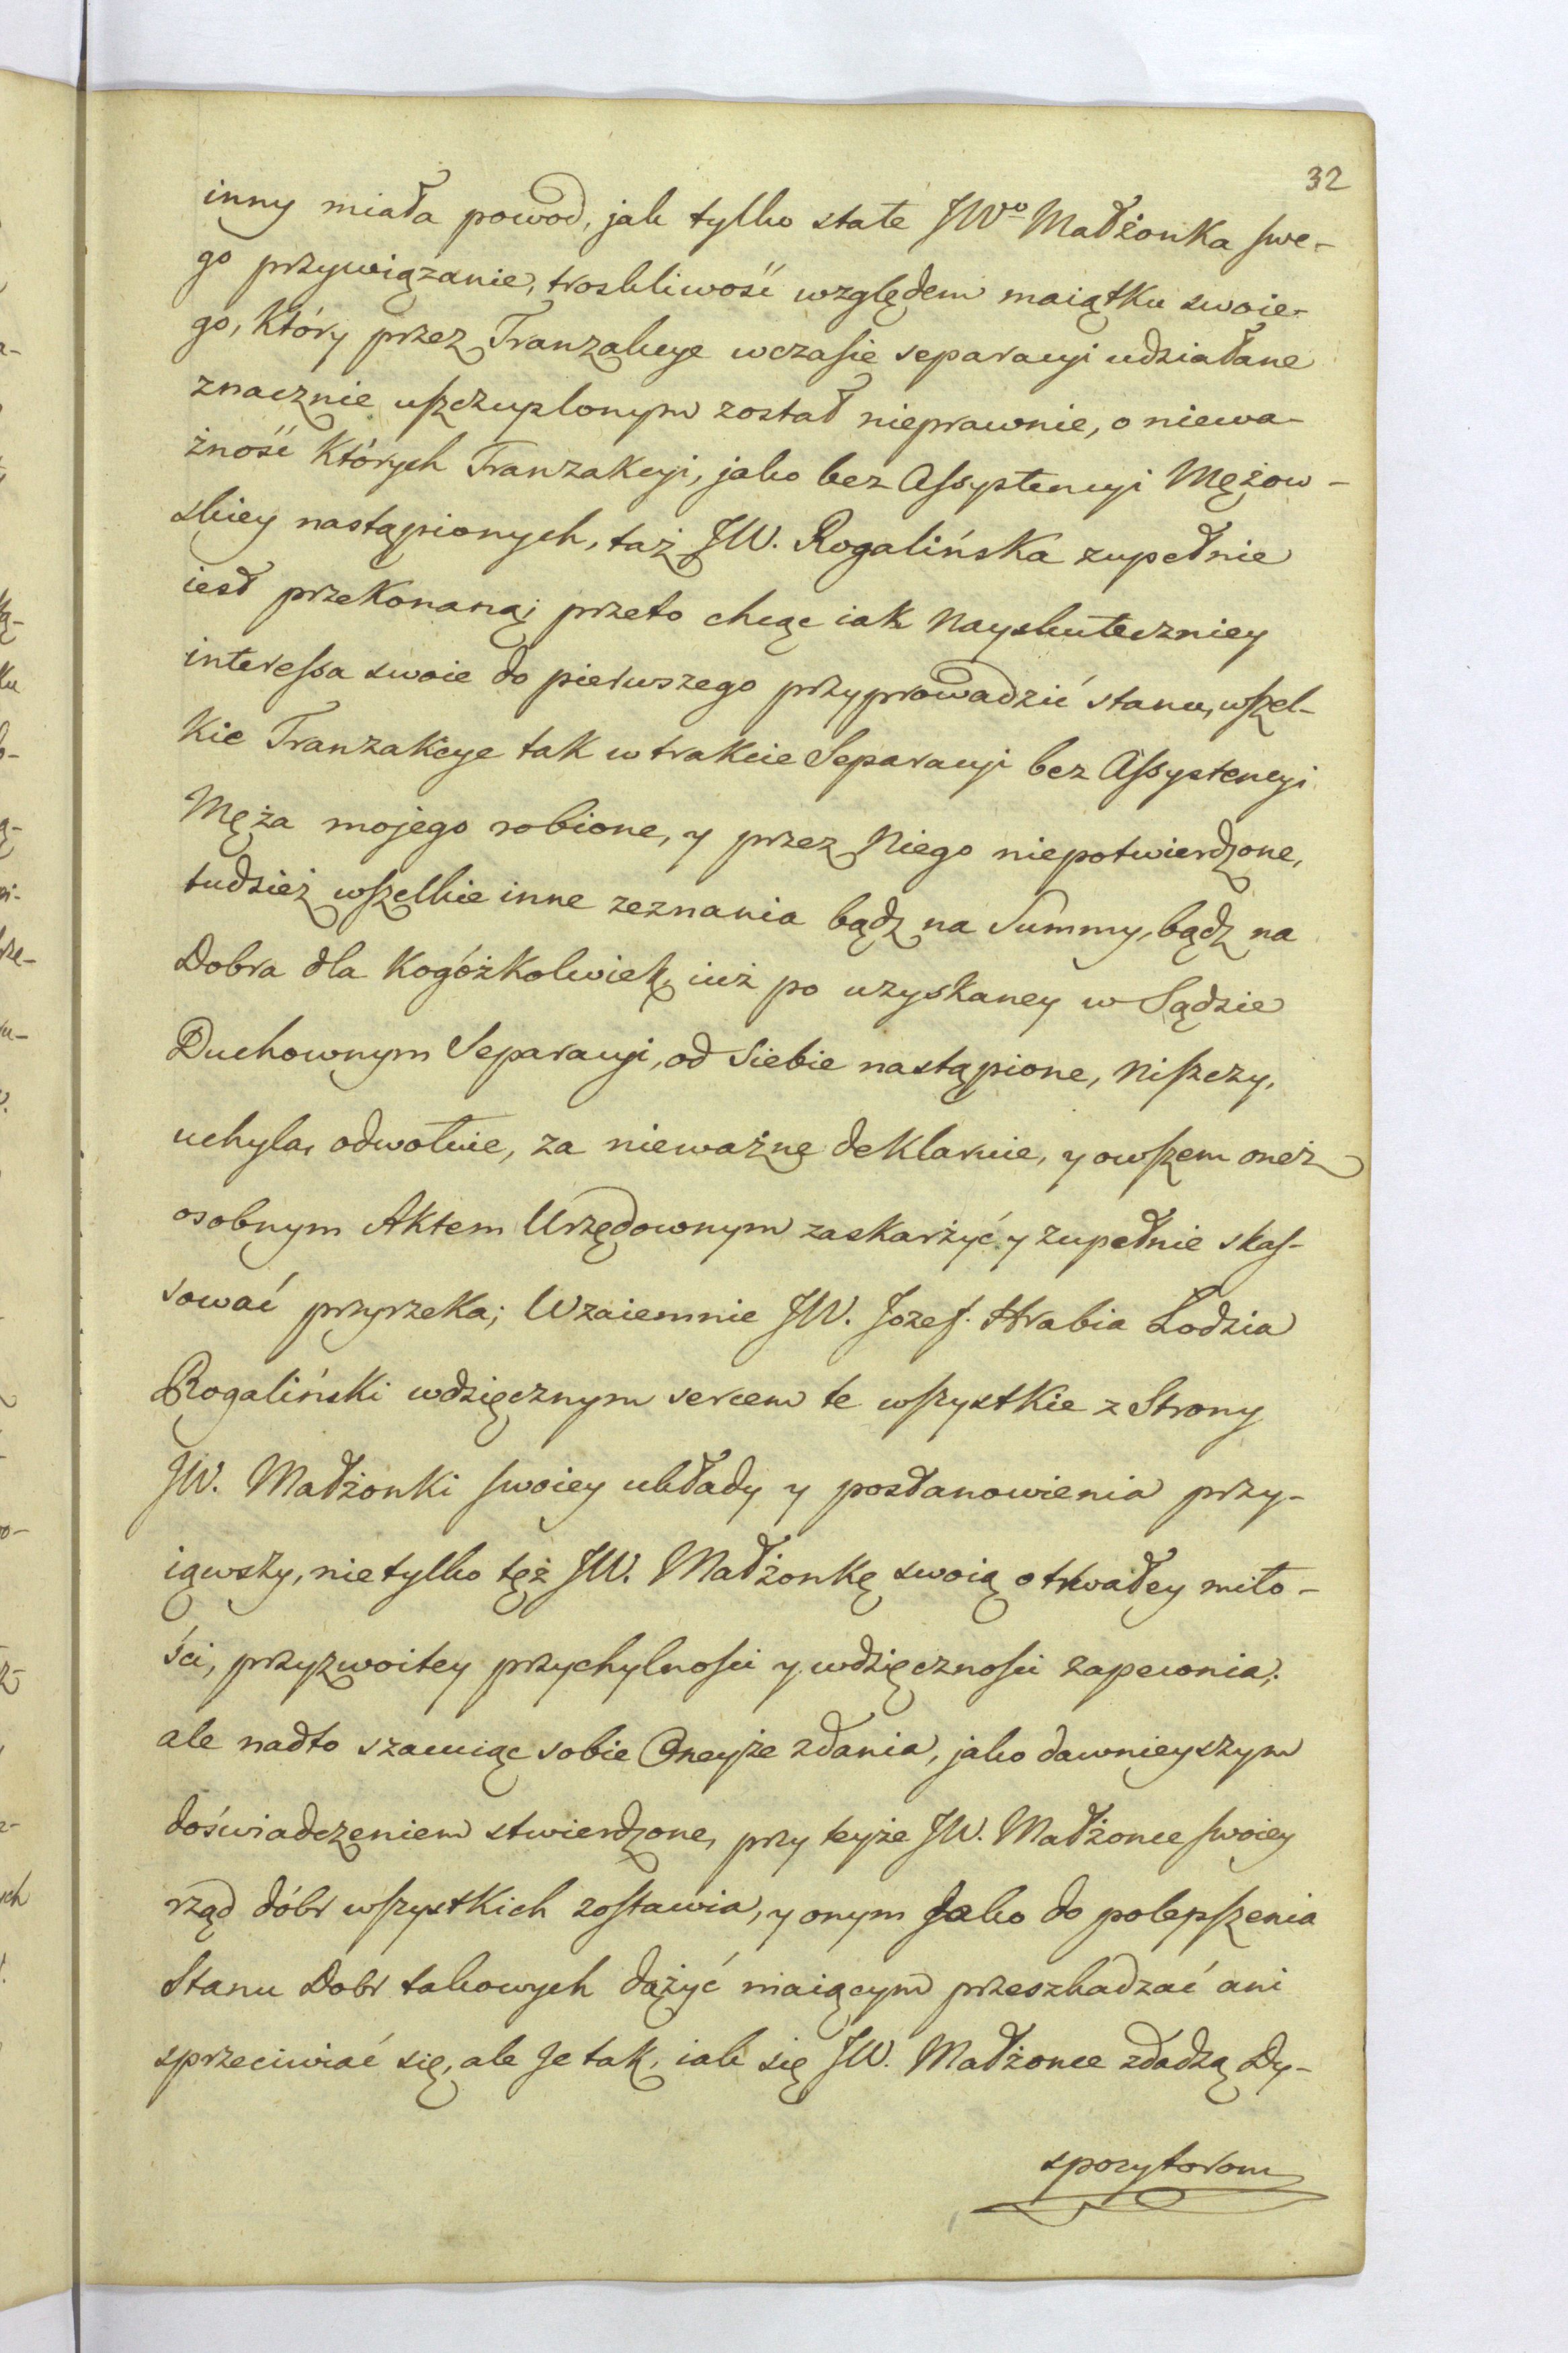 32
inny miała powod, jak tylko stałe JWo Małżonka swe-
go przywiązanie, troskliwość względem maiątku swoie-
go, który przez Tranzakcye w czasie separacyi udziałane
znacznie uszczuplonym został nieprawnie, o niewa-
żność których Tranzakcyi, jako bez Assystencyi Mężow-
skiey nastąpionych, taż JW. Rogalińska zupełnie
iest przekonaną; przeto chcąc iak nayskuteczniey
interessa swoie do pierwszego przyprowadzić stanu, wszel-
kie Tranzakcye tak w trakcie Separacyi bez Assystencyi
Męża mojego robione, y przez Niego niepotwierdzone,
tudzież wszelkie inne zeznania bądz na Summy, bądz na
Dobra dla kogóżkolwiek, iuż po uzyskaney w Sądzie
Duchownym Separacyi, od siebie nastąpione, niszczy,
uchyla, odwołuie, za nieważne deklaruie, y owszem oneż
osobnym Aktem Urzędownym zaskarżyć y zupełnie skas-
sować przyrzeka; Wzaiemnie JW. Jozef Hrabia Łodzia
Rogaliński wdzięcznym sercem te wszystkie z Strony
JW. Małżonki swoiey układy y postanowienia przy-
iąwszy, nie tylko też JW. Małżonkę swoią o trwałey miło-
ści, przyzwoitey przychylności y wdzięczności zapewnia;
ale nadto szacuiąc sobie Oneyże zdania, jako dawnieyszym
doświadczeniem stwierdzone, przy teyże JW. Małżonce swoiey
rząd dóbr wszystkich zostawia, y onym Jako do polepszenia
Stanu Dobr takowych dążyć maiącym przeszkadzać ani
sprzeciwiać się, ale Je tak, iak się JW. Małżonce zdadzą Dy-
spozytorom